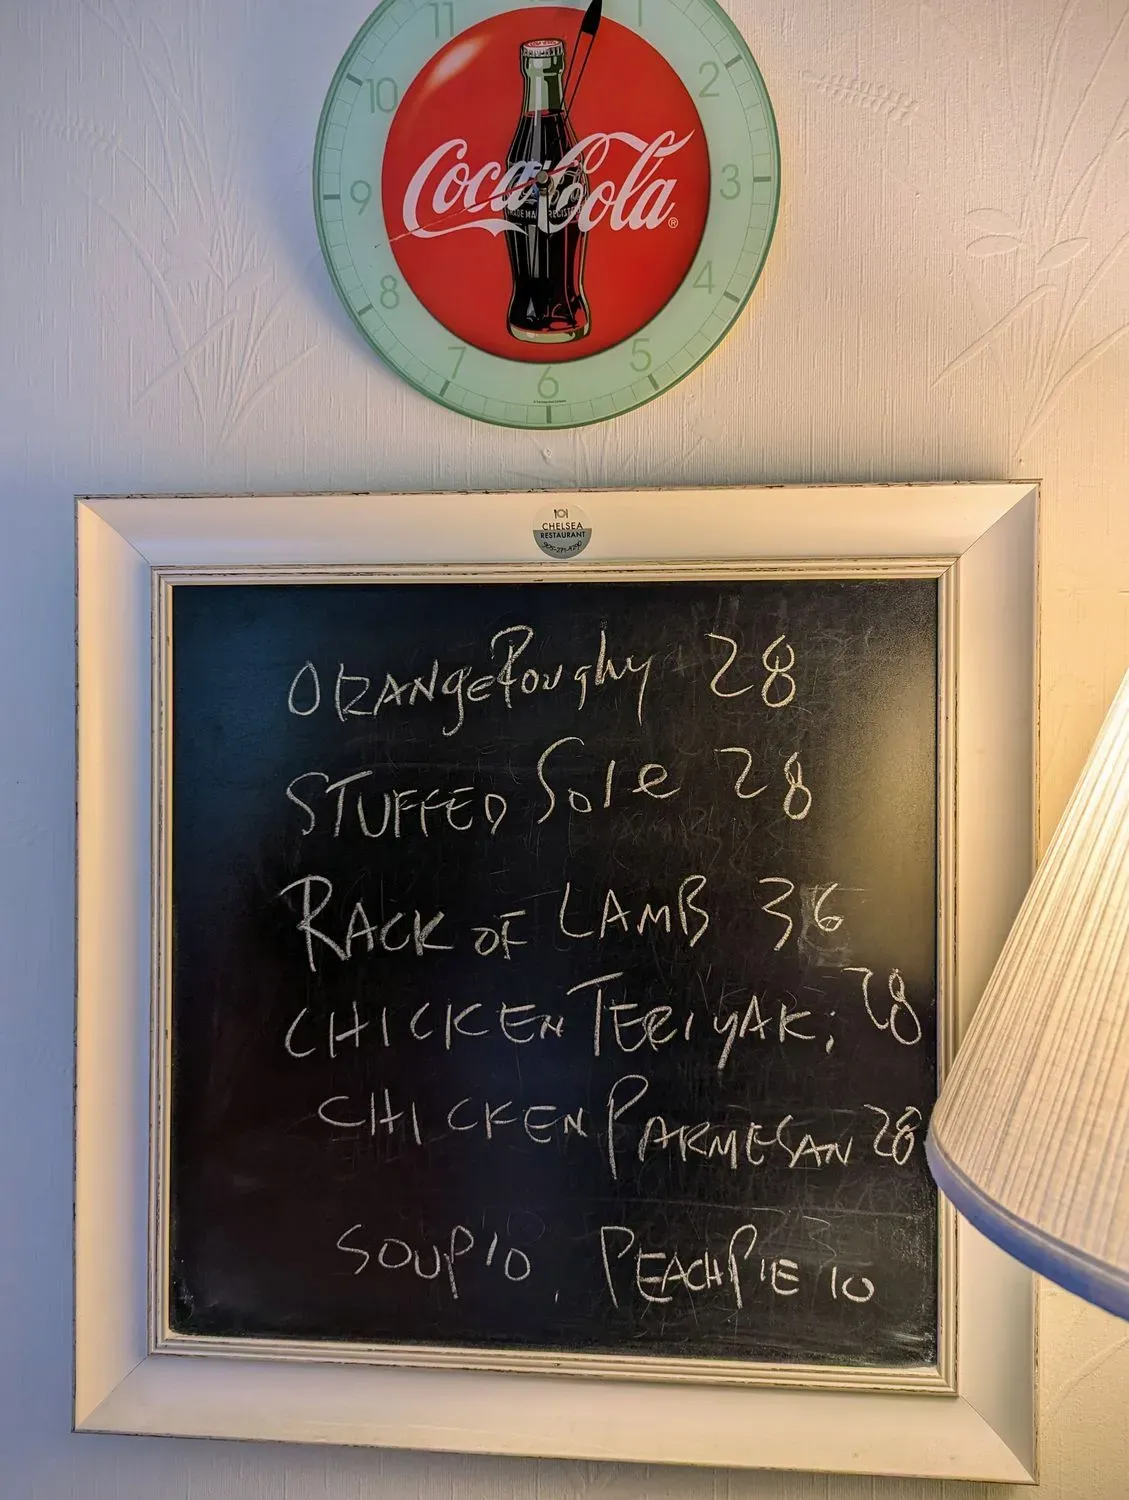 11
1
10
2
Coca-Cola
TRADE MARK REGISTERED
®
9
3
8
4
7
5
6
CHELSEA
RESTAURANT
ORANGE Roughy 28
STUFFED Sole 28
RACK OF LAMB 36
CHICKEN TERIYAKi 28
CHICKEN PARMESAN 28
SOUP 10 PEACH PIE 10